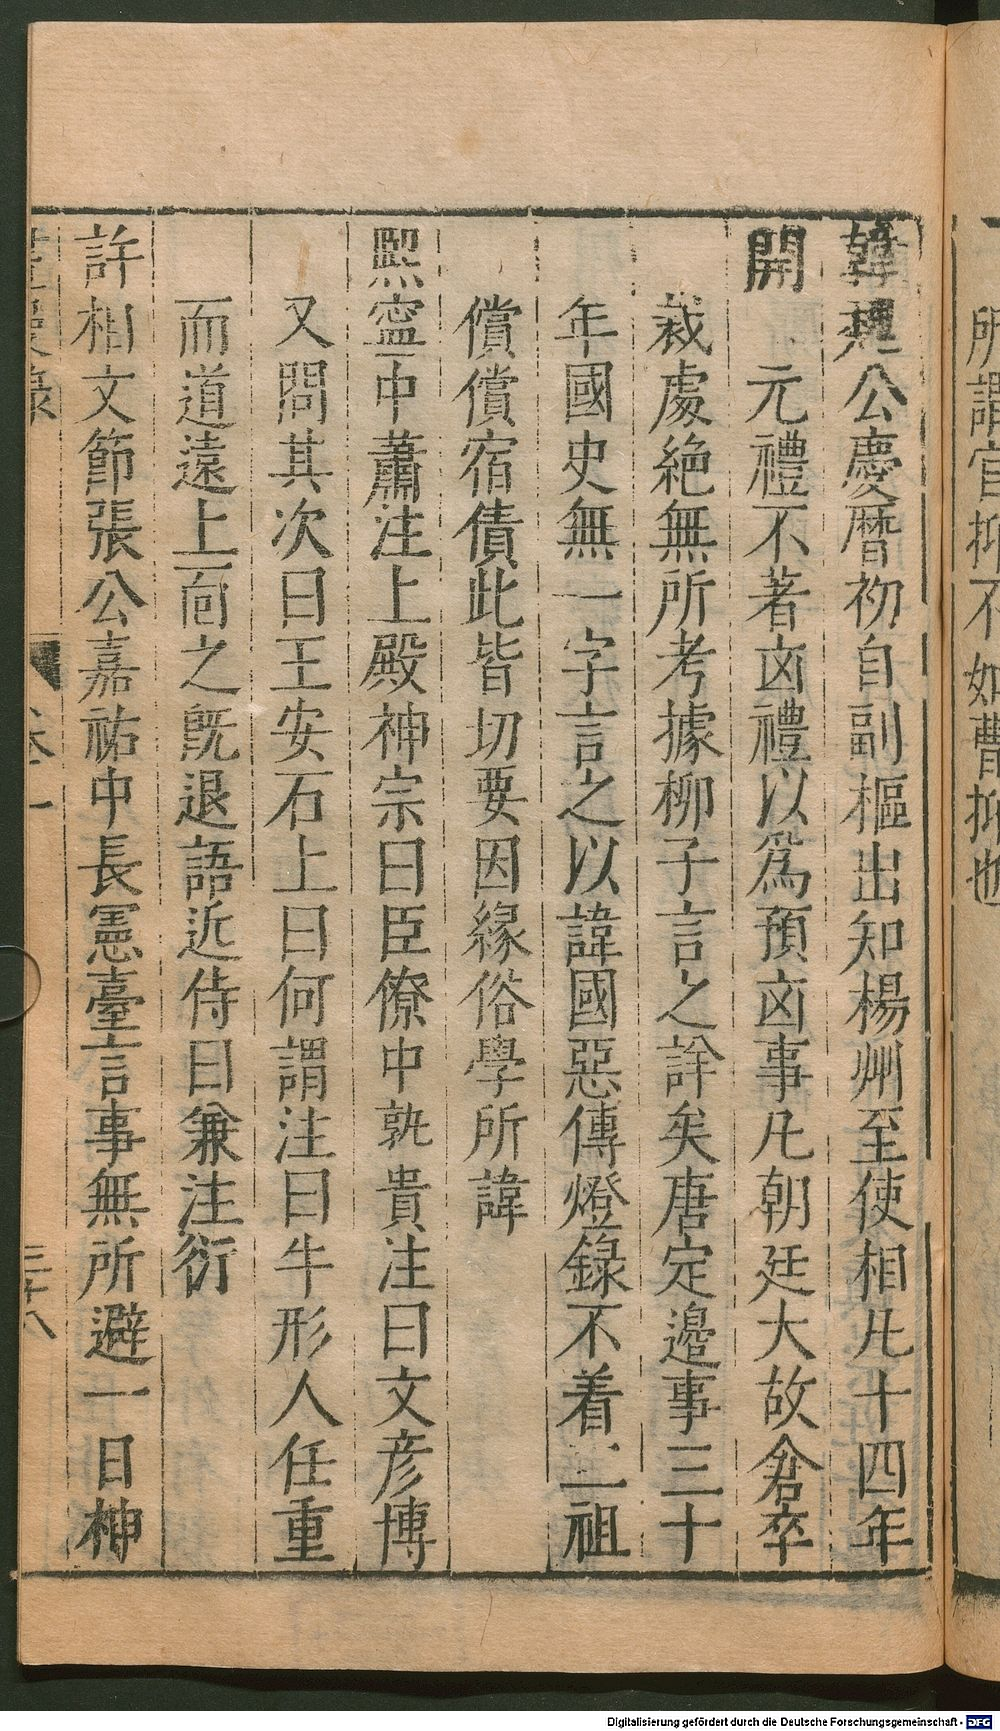 所謂官抑不如曹抑也
韓魏公慶曆初自副樞出知楊州至使相凡十四年
開元禮不著凶禮以爲預凶事凡朝廷大故倉卒
裁處絶無所考據柳子言之詳矣唐定邊事三十
年國史無一字言之以諱國惡傳燈錄不着二祖
償償宿債此皆切要因緣俗學所諱
熙寧中蕭注上殿神宗曰臣僚中孰貴注曰文彥博
又問其次曰王安石上曰何謂注曰牛形人任重
而道遠上面之既退語近侍曰兼注衍
許相文節張公嘉祐中長憲臺言事無所避一日神
卷一
三十八
Digitalisierung gefördert durch die Deutsche Forschungsgemeinschaft - DFG